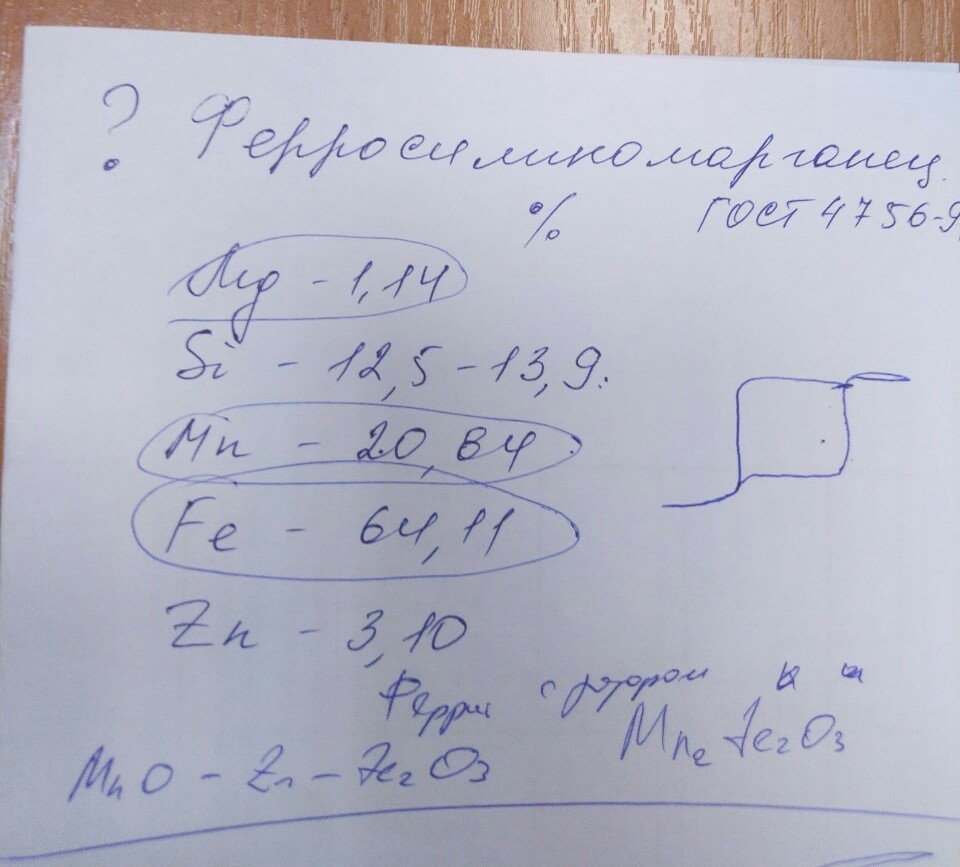 ? Ферросиликомарганец
% ГОСТ 4756-9
Mg - 1,14
Si - 12,5 - 13,9.
Mn - 20,64
Fe - 64,11
Zn - 3,10
с зазором
MnO - Zn - Fe₂O₃ Mn₂ Fe₂O₃